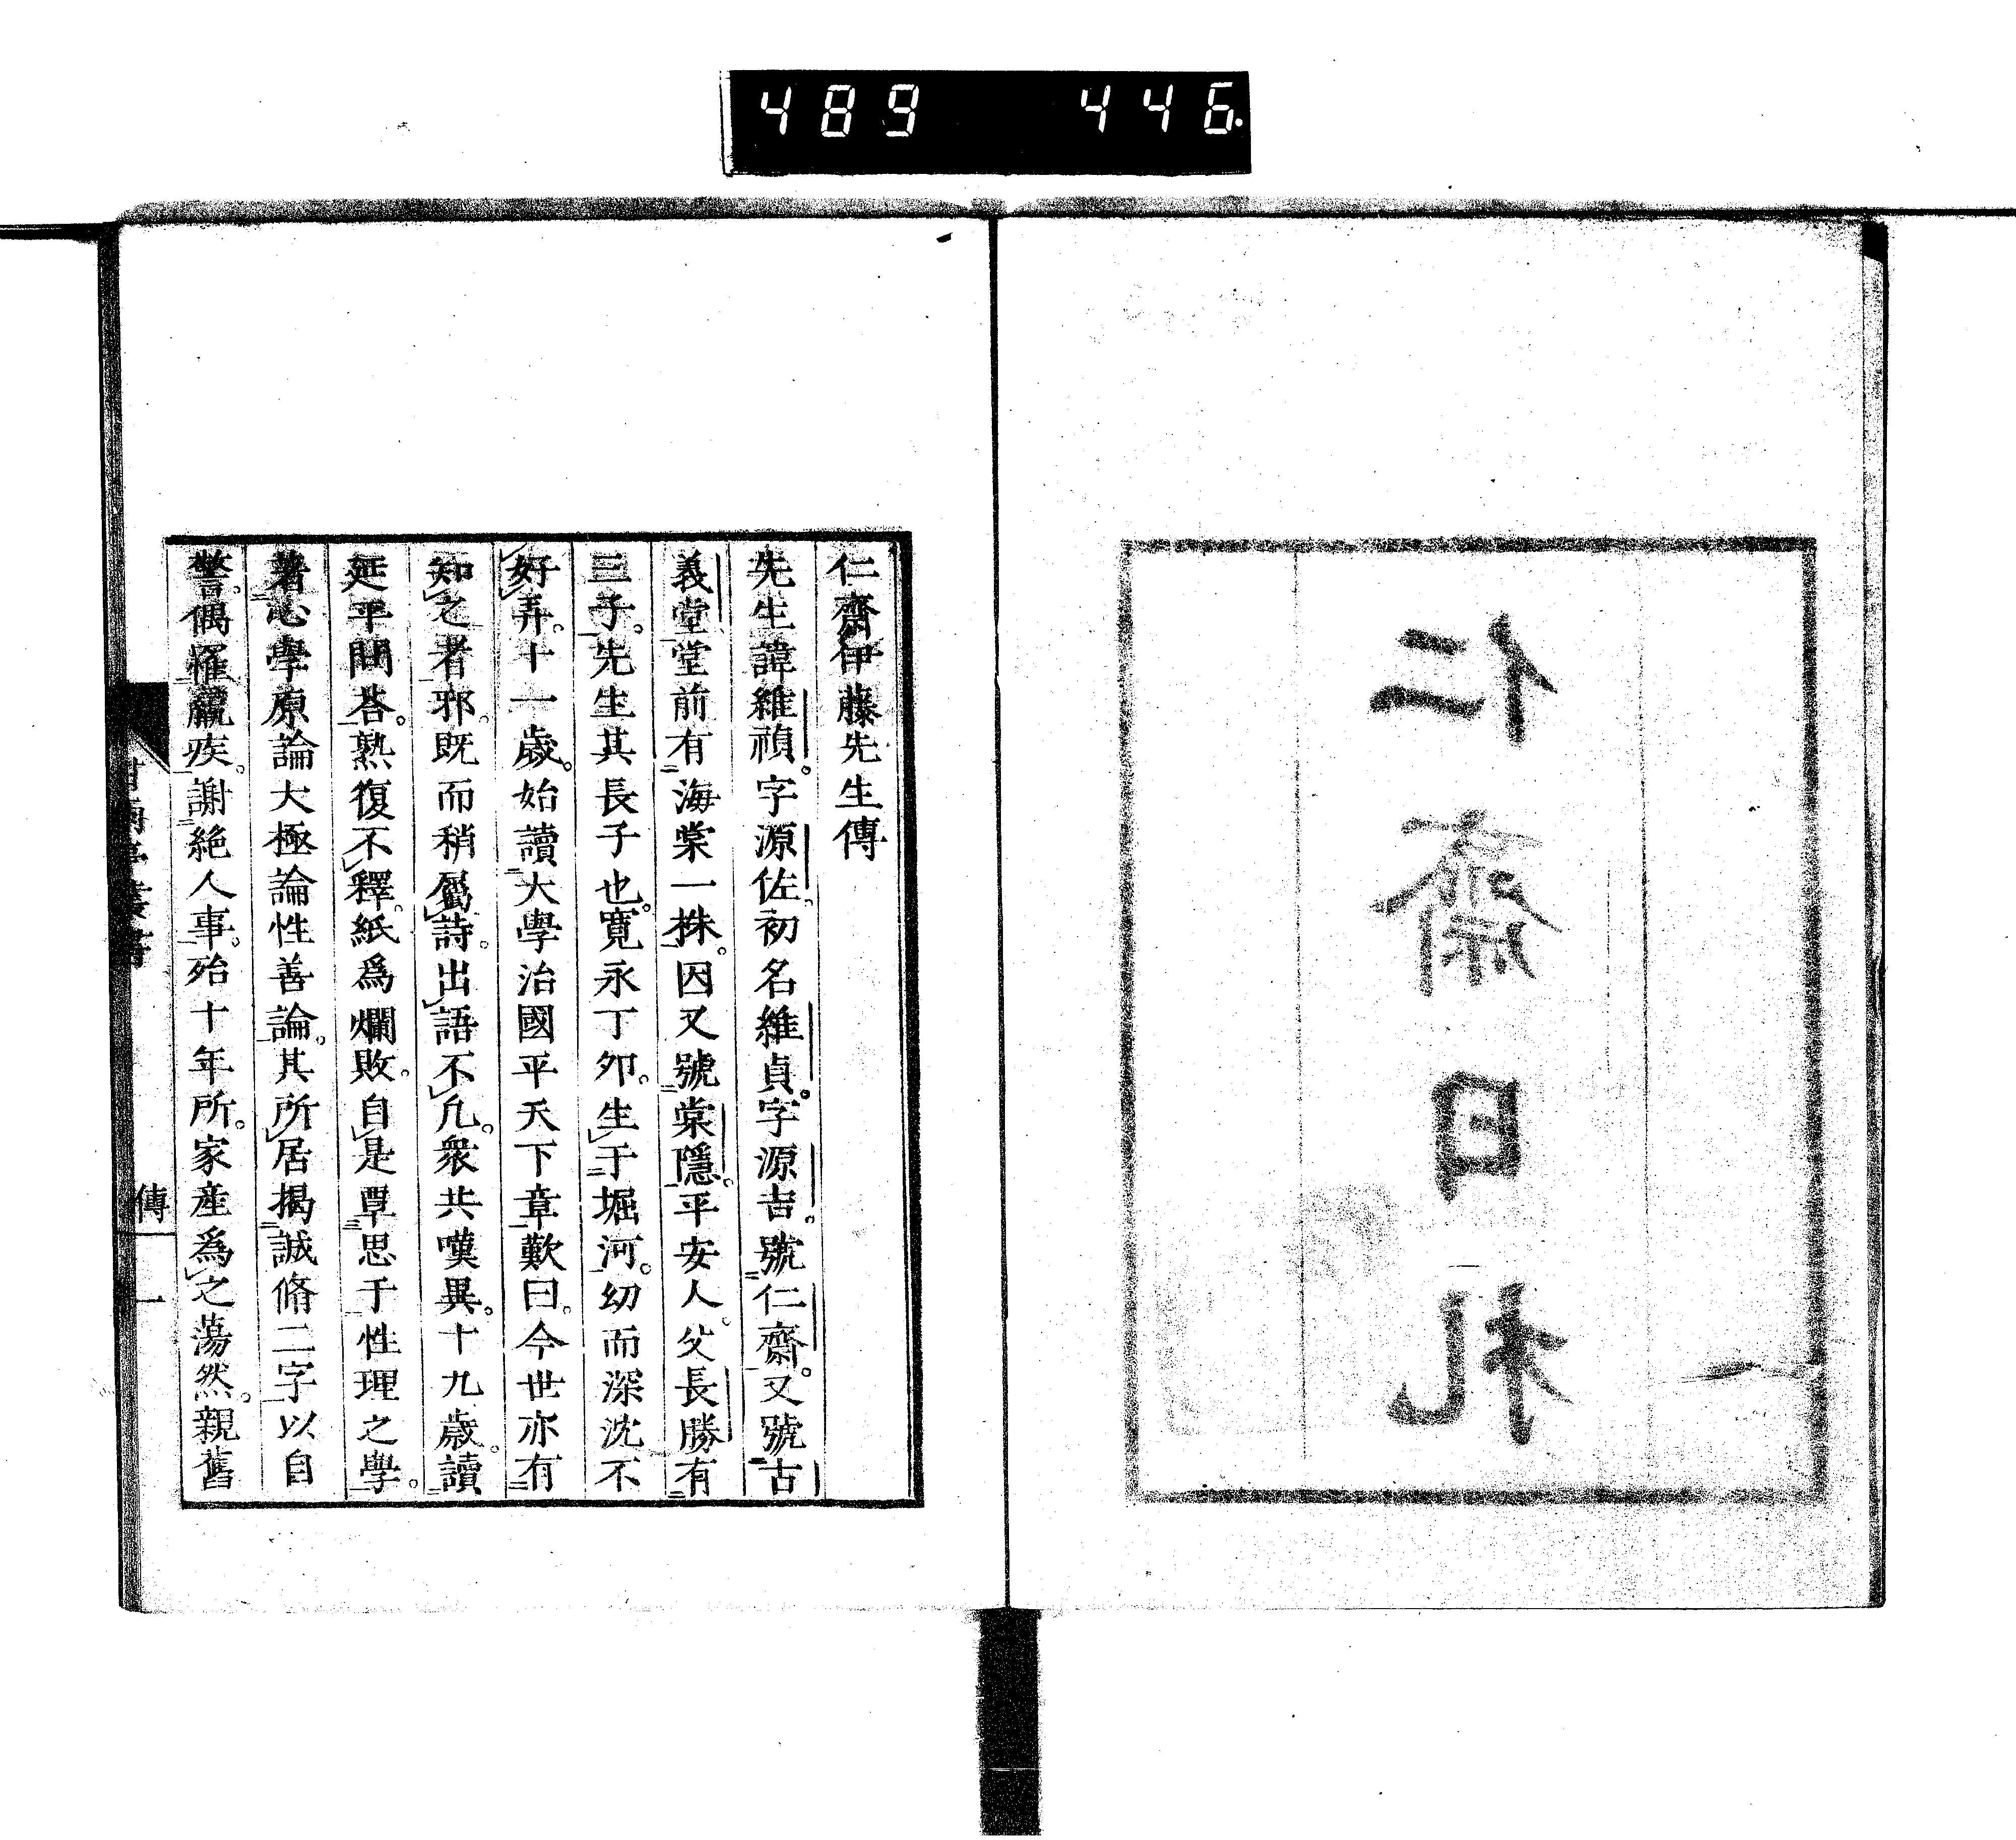 489 446.
仁齋日札
仁齋伊藤先生傳
先生諱維禎。字源佐。初名維貞。字源吉。號仁齋。又號古
義堂堂前有海棠一株。因又號棠隱。平安人。父長勝有
三子。先生其長子也。寛永丁夘。生于堀河。幼而深沈不
好弄。十一歳。始讀大學治國平天下章歎曰。今世亦有
知之者邪。既而稍屬詩。出語不凢。衆共嘆異。十九歳。讀
延平問荅。熟復不釋。紙爲爛敗。自是覃思于性理之學。
著心學原論大極論性善論。其所居揭誠脩二字以自
警。偶罹羸疾。謝絶人事。殆十年所。家産爲之蕩然。親舊
傳 一